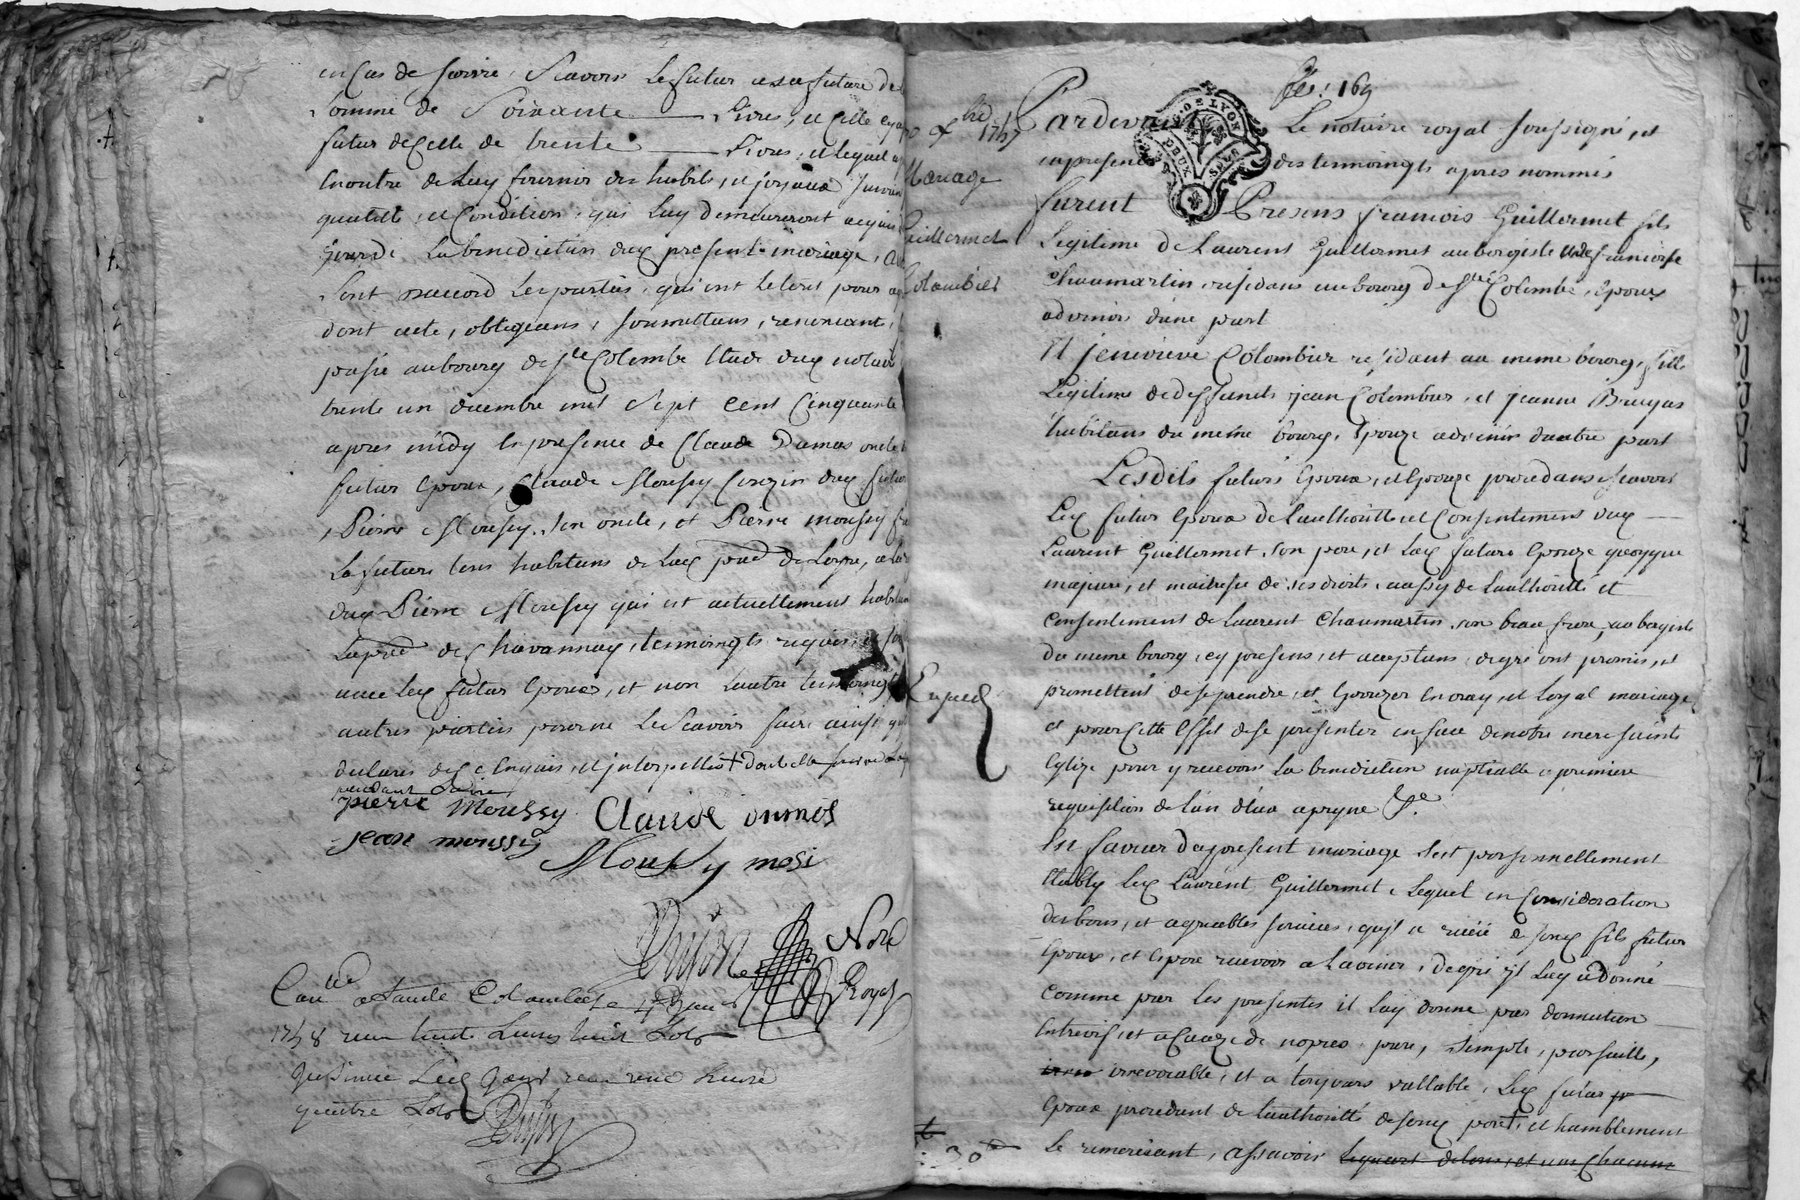 en Cas de survie, Scavoir le futur a sa future de
somme de Soixante livres, et Celle cy au
futur de Celle de trente livres, et lequel
En outre de luy fournir des habits, et joyaux suivan
qualité, et Condition, qui luy demeureront acquis
La benediction dud present mariage,
Sont d'accord les parties, qui ont le tout pour
dont acte, obligeans, soumettans, renoncant,
passé au bourg de Ste Colombe Etude dud notaire
trente un decembre mil Sept Cent Cinquante
apres midy En presence de Claude Dumas oncle
futur Epoux, Claude Moussy Cousin dud futur
Pierre Moussy son oncle, et Pierre moussy
La future tous habitans de lad parr de Loyre, a la
dud Pierre Moussy qui est actuellement habitant
La parr de Chavannay, temoingts requis,
avec led futur Epoux, et non l'autre temoingt
autres parties pour ne le Scavoir faire ainsi
declarés de ce Enquis, et interpellés
pierre Moussy Claude dumas
jean moussy
Moussy
Nore
Royal
Con lle a Sainte Colombe le Janv
1748 reçu Livres huit sols
quatre sols
fe: 169
DE LYON
DEUX SOLS
1747
Mariage
Guillermet
Colombier
Expedié
Pardevant Le notaire royal soussigné, et
en presence des temmoingts apres nommés
furent Presens françois Guillermet fils
Legitime de Laurent Guillermet aubergiste et de françoise
Chaumartin, residans au bourg de Ste Colombe, Epoux
advenir d'une part
Et jeneviève Colombier residant au meme bourg, fille
Legitime de deffunts jean Colombier, et jeanne Bruyas
habitans du meme bourg, Epouze advenir dautre part
Lesdits futurs Epoux, et Epouze procedans, scavoir
Led futur Epoux de l'authorité et Consentement dud
Laurent Guillermet son pere, et lad future Epouze quoyque
majeure, et maitresse de ses droits, aussy de l'authorité et
Consentement de Laurent Chaumartin son beau frere, aubergiste
du meme bourg, cy presens, et acceptans, de gré ont promis, et
promettent de se prendre, et Epouzer En vray, et loyal mariage,
et pour Cette Effet de se presenter en face de notre mere sainte
Eglize pour y recevoir la benediction nuptialle a premiere
requisition de l'un d'eux a peyne &e.
En faveur du present mariage s'est personnellement
Etably led Laurent Guillermet, lequel en Consideration
des bons, et agreables services, qu'il a de son fils futur
Epoux, et Espere recevoir a l'avenir, de gré il luy a donné
comme par les presentes il luy donne par donnation
Entrevifs, et a Cauze de nopces, pure, simple, parfaitte,
irrevocable, et a toujours vallable, led futur
Epoux procedant de l'authorité de son pere, et humblement
Le remerciant, assavoir